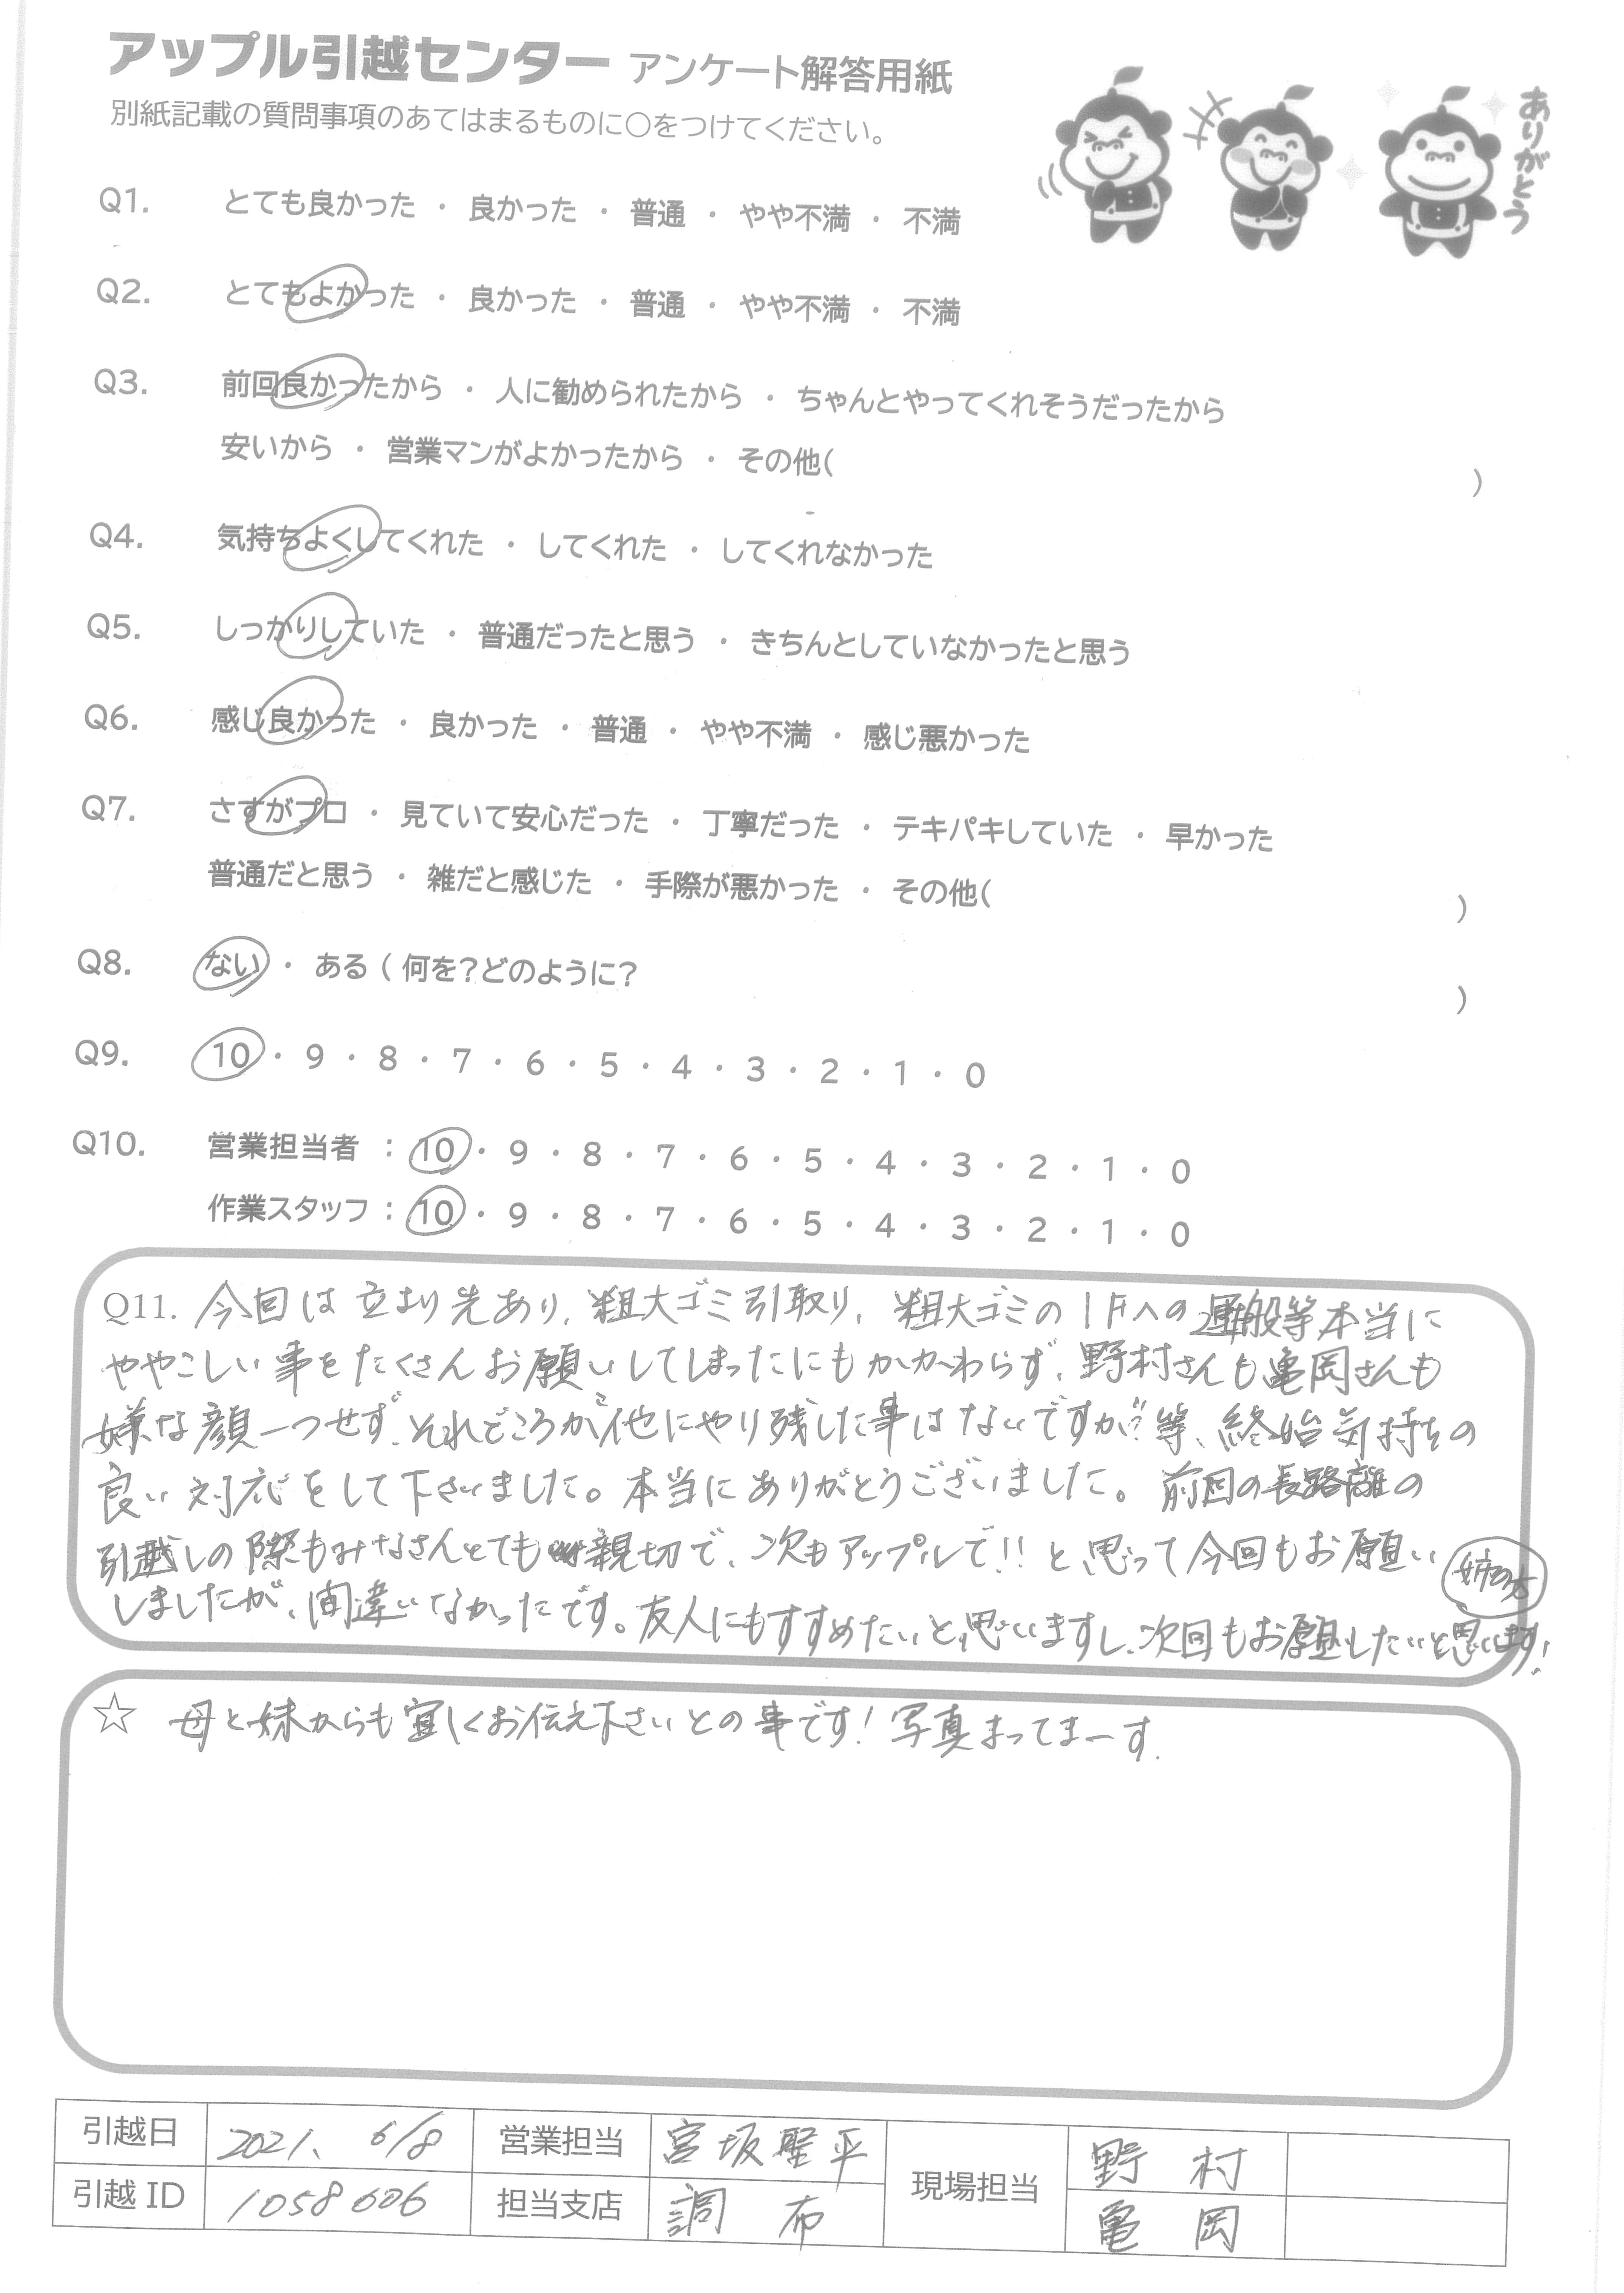 アップル引越センター アンケート解答用紙
別紙記載の質問事項のあてはまるものに○をつけてください。
ありがとう
Q1. とても良かった ・ 良かった ・ 普通 ・ やや不満 ・ 不満
Q2. とてもよかった ・ 良かった ・ 普通 ・ やや不満 ・ 不満
Q3. 前回良かったから ・ 人に勧められたから ・ ちゃんとやってくれそうだったから
安いから ・ 営業マンがよかったから ・ その他( )
Q4. 気持ちよくしてくれた ・ してくれた ・ してくれなかった
Q5. しっかりしていた ・ 普通だったと思う ・ きちんとしていなかったと思う
Q6. 感じ良かった ・ 良かった ・ 普通 ・ やや不満 ・ 感じ悪かった
Q7. さすがプロ ・ 見ていて安心だった ・ 丁寧だった ・ テキパキしていた ・ 早かった
普通だと思う ・ 雑だと感じた ・ 手際が悪かった ・ その他( )
Q8. ない ・ ある ( 何を?どのように? )
Q9. 10 ・ 9 ・ 8 ・ 7 ・ 6 ・ 5 ・ 4 ・ 3 ・ 2 ・ 1 ・ 0
Q10. 営業担当者 : 10 ・ 9 ・ 8 ・ 7 ・ 6 ・ 5 ・ 4 ・ 3 ・ 2 ・ 1 ・ 0
作業スタッフ : 10 ・ 9 ・ 8 ・ 7 ・ 6 ・ 5 ・ 4 ・ 3 ・ 2 ・ 1 ・ 0
Q11. 今回は立まり先あり、粗大ゴミ引取り、粗大ゴミの1Fへの運般等本当に
ややこしい事をたくさんお願いしてしまったにもかかわらず、野村さんも亀岡さんも
嫌な顔一つせず、それどころか"他にやり残した事はないですか?"等、終始気持ちの
良い対応をして下さいました。本当にありがとうございました。前回の長路離の
引越しの際もみなさんとても親切で、次もアップルで!!と思って今回もお願い
しましたが、間違いなかったです。友人にもすすめたいと思いますし、次回もお願いしたいと思います!
姉の方
☆ 母と妹からも宜しくお伝え下さいとの事です! 写真まってまーす.
引越日 2021. 6/8 営業担当 宮坂聖平 現場担当 野村
引越ID 1058606 担当支店 調布 亀岡